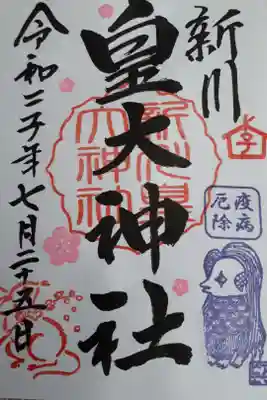 新川
皇大神社
令和二子年七月二十五日
新川皇
大神社
疫病
厄除